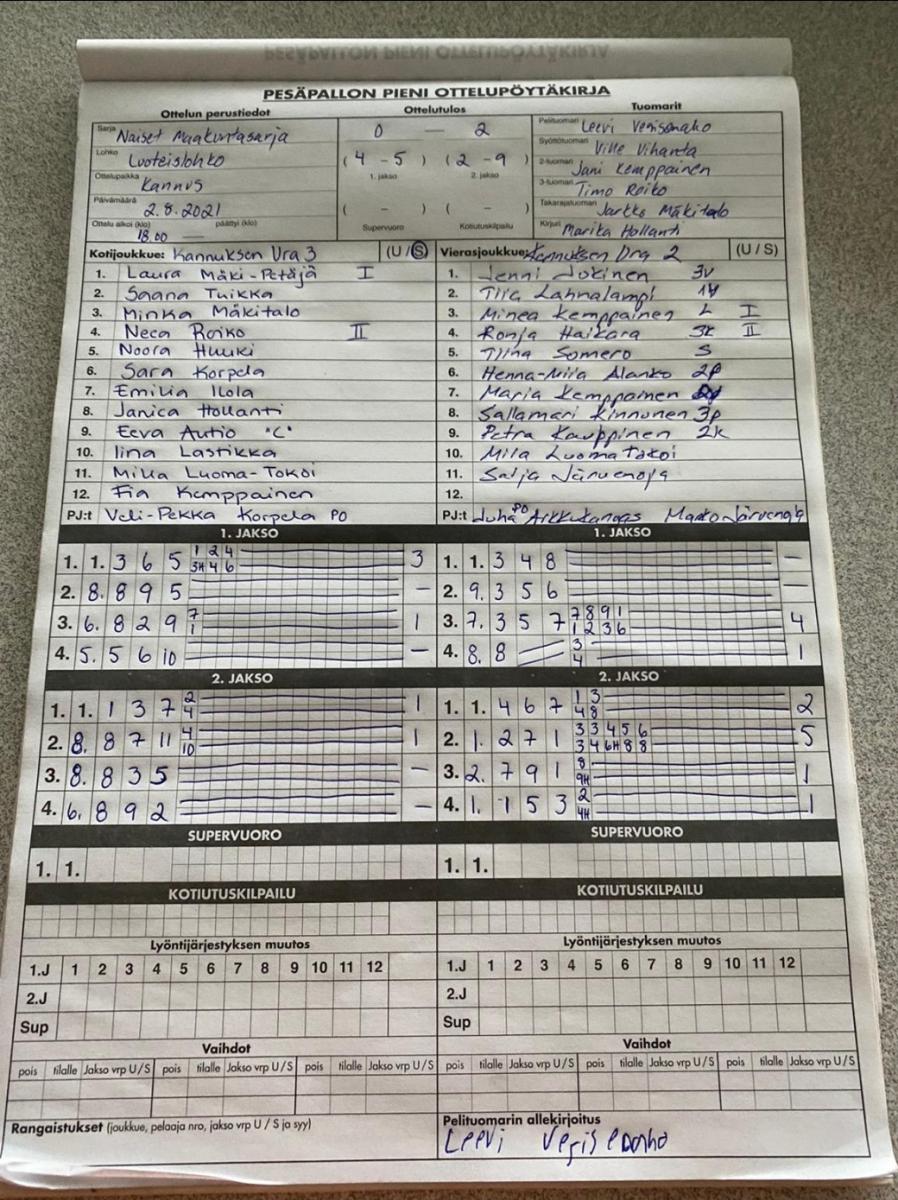 PESÄPALLON PIENI OTTELUPÖYTÄKIRJA
PESÄPALLON PIENI OTTELUPÖYTÄKIRJA
Ottelun perustiedot Ottelutulos Tuomarit
Sarja Naiset Maakuntasarja 0 — 2 Pelituomari Leevi Vegisonaho
Lohko Luoteislohko ( 4 - 5 ) ( 2 - 9 ) Syöttötuomari Ville Vihanta
1. jakso 2. jakso 2-tuomari Jani Kemppainen
Ottelupaikka Kannus 3-tuomari Timo Roiko
Päivämäärä 2.8.2021 ( - ) ( - ) Takarajatuomari Jarkko Mäkitalo
Ottelu alkoi (klo) 18.00 päättyi (klo) — Supervuoro Kotiutuskilpailu Kirjuri Marika Hollanti
Kotijoukkue: Kannuksen Ura 3 (U / S) Vierasjoukkue: Kannuksen Ura 2 (U / S)
1. Laura Mäki-Petäjä I 1. Jenni Jokinen 3v
2. Saana Tuikka 2. Tiia Lahnalampi 1v
3. Minka Mäkitalo 3. Minea Kemppainen L I
4. Neea Roiko II 4. Ronja Haikara 3k II
5. Noora Huuki 5. Tiina Somero S
6. Sara Korpela 6. Henna-Miia Alanko 2p
7. Emilia Ilola 7. Maria Kemppainen
8. Janica Hollanti 8. Sallamari Kinnunen 3p
9. Eeva Autio "C" 9. Petra Kauppinen 2k
10. Iina Lastikka 10. Mila Luoma Tokoi
11. Milla Luoma-Tokoi 11. Salja Järvenoja
12. Fia Kemppainen 12.
PJ:t Veli-Pekka Korpela PO PJ:t Juha PO Arkkukangas Marko Järvenoja
1. JAKSO 1. JAKSO
1. 1. 3 6 5 1 2 4 3 1. 1. 3 4 8 —
3H 4 6
2. 8. 8 9 5 — 2. 9. 3 5 6 —
3. 6. 8 2 9 7 1 3. 7. 3 5 7 7 8 9 1 4
1 1 2 3 6
4. 5. 5 6 10 — 4. 8. 8 3 1
4
2. JAKSO 2. JAKSO
1. 1. 1 3 7 2 1 1. 1. 4 6 7 1 3 2
4 4 8
2. 8. 8 7 11 4 1 2. 1. 2 7 1 3 3 4 5 6 5
10 3 4 6H 8 8
3. 8. 8 3 5 — 3. 2. 7 9 1 8 1
9H
4. 6. 8 9 2 — 4. 1. 1 5 3 2 1
4H
SUPERVUORO SUPERVUORO
1. 1. 1. 1.
KOTIUTUSKILPAILU KOTIUTUSKILPAILU
Lyöntijärjestyksen muutos Lyöntijärjestyksen muutos
1.J 1 2 3 4 5 6 7 8 9 10 11 12 1.J 1 2 3 4 5 6 7 8 9 10 11 12
2.J 2.J
Sup Sup
Vaihdot Vaihdot
pois tilalle Jakso vrp U/S pois tilalle Jakso vrp U/S pois tilalle Jakso vrp U/S pois tilalle Jakso vrp U/S pois tilalle Jakso vrp U/S pois tilalle Jakso vrp U/S
Rangaistukset (joukkue, pelaaja nro, jakso vrp U / S ja syy) Pelituomarin allekirjoitus
Leevi